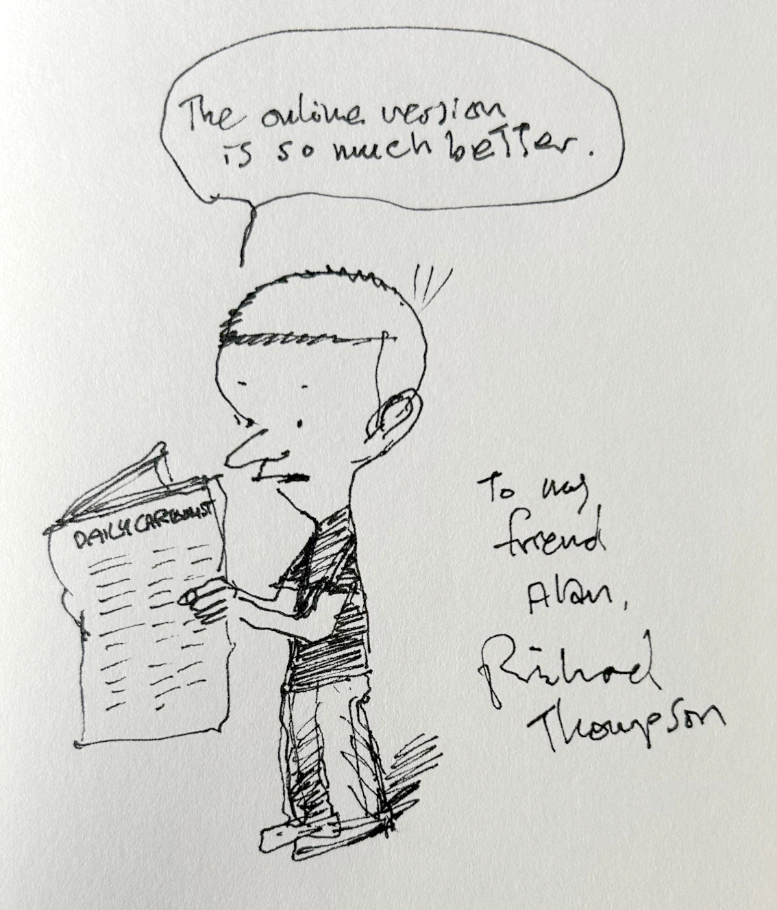 The online version
is so much better.
DAILY CARTOONIST
To my
friend
Alan,
Richard
Thompson